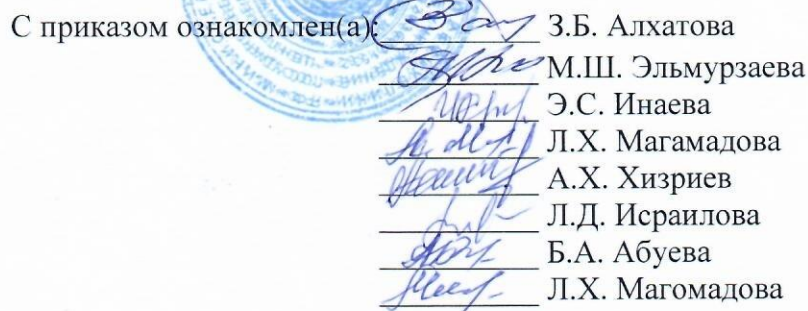 С приказом ознакомлен(а): З.Б. Алхатова
М.Ш. Эльмурзаева
Э.С. Инаева
Л.Х. Магамадова
А.Х. Хизриев
Л.Д. Исраилова
Б.А. Абуева
Л.Х. Магомадова